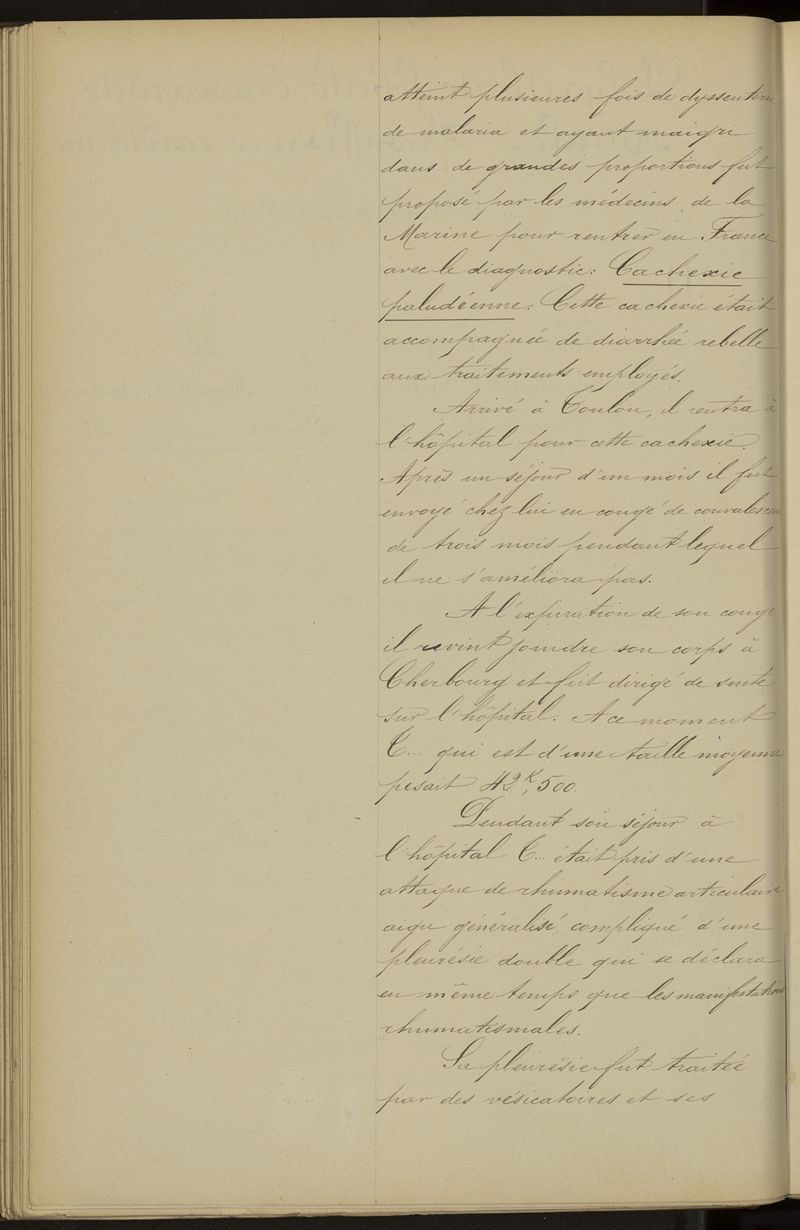 atteint plusieures fois de dyssenterie
de malaria et ayant maigri
dans de grandes proportions fut
proposé par les médecins de la
Marine pour rentrer en France
avec le diagnostic: Cachexie
paludéenne. Cette cachexie était
accompagnée de diarrhée rebelle
aux traitements employés.
Arrivé à Toulon, il rentra à
l'hôpital pour cette cachexie.
Après un séjour d'un mois il fut
envoyé chez lui en congé de convalescence
de trois mois pendant lequel
il ne s'améliora pas.
A l'expiration de son congé
il revint joindre son corps à
Cherbourg et fut dirigé de suite
sur l'hôpital. A ce moment
T... qui est d'une taille moyenne
pesait 42K,500.
Pendant son séjour à
l'hôpital T... était pris d'une
attaque de rhumatisme articulaire
aigu généralisé, compliqué d'une
pleurésie double qui se déclara
en même temps que les manifestations
rhumatismales.
Sa pleurésie fut traitée
par des vésicatoires et ses